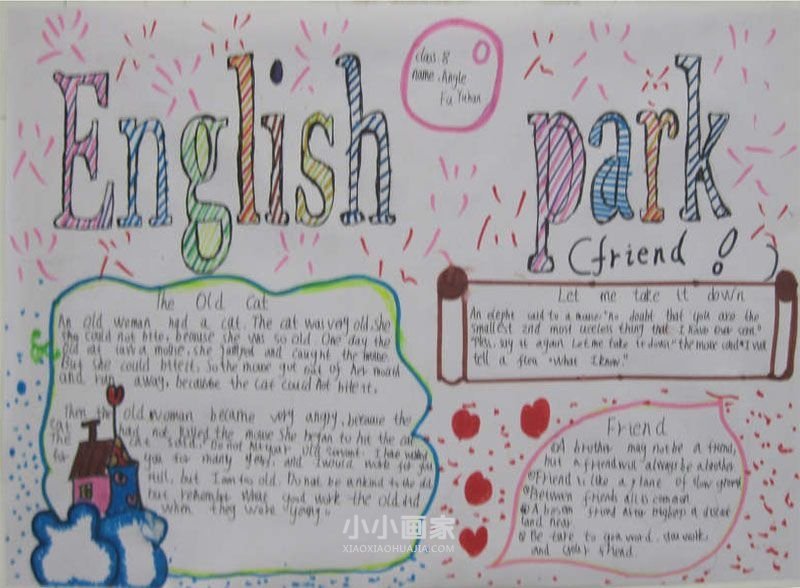 English park
class: 8
name: Angle
Fu Yuhan
(friend!)
The Old Cat
An old woman had a cat. The cat was very old. She
could not bite, because she was so old. One day the
old cat saw a mouse, she jumped and caught the mouse.
But she could bite it. So the mouse got out of her mouth
and run away, because the cat could not bite it.
Then the old woman became very angry, because the
cat had not killed the mouse. She began to hit the cat.
The cat said: Do not hit your old
for you for many years, and I would work for you
still, but I am too old. Do not be unkind to the old
but remember what good work the old did
when they were young.
Let me take it down
An said to a mouse: "no doubt that you are the
smallest and most useless thing that I have ever seen."
say it again. Let me take it down" the mouse said "I will
tell a flea what I know."
Friend
A brother may not be a friend,
but a friend will always be a
Friend is like a of slow
Between friends all is common
A friend
and near
Be to
and your friend
小小画家
XIAOXIAOHUAJIA.COM